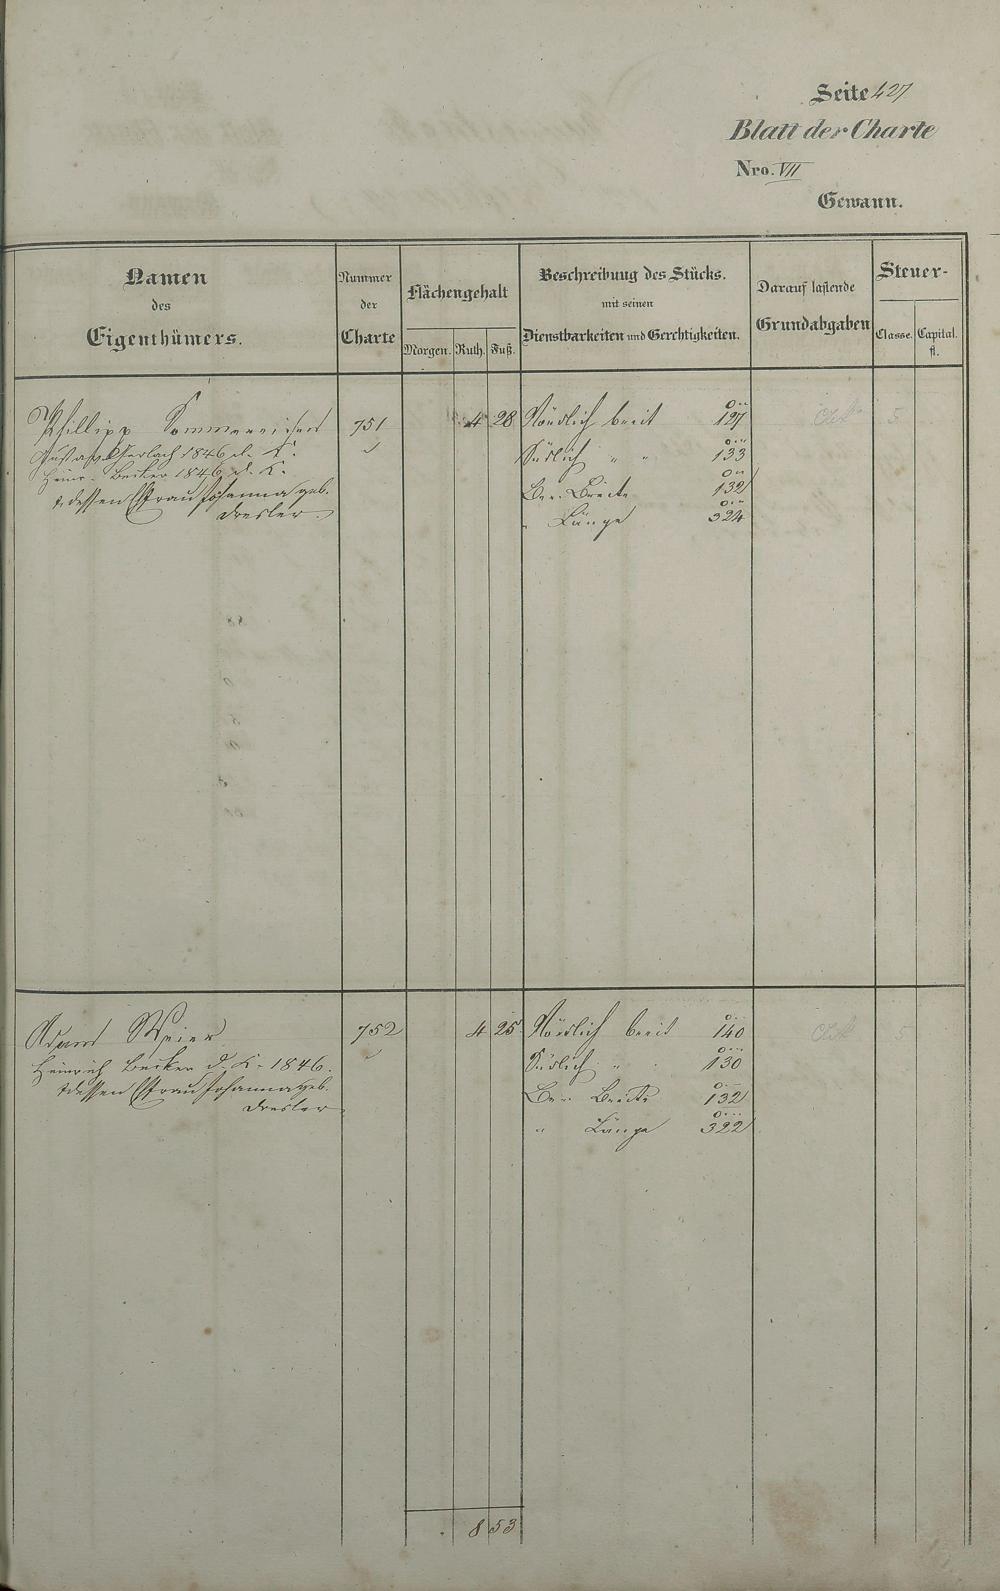 Seite 427
Blatt der Charte
Nro. VII
Gewann.
Namen
des
Eigenthümers.
Nummer
der
Charte
Flächengehalt
Morgen. Ruth. Fuß.
Beschreibung des Stücks.
mit seinen
Dienstbarkeiten und Gerechtigkeiten.
Darauf lastende
Grundabgaben
Steuer-
Classe. Capital.
fl.
Phillipp Sommereisen 751 4 28 Nördlich breit 127 5
Gustav Gerlach 1846 d. K. Südlich " " 133
Heinr. Becker 1846 d. K. Ber. Breite 132
& dessen Ehefrau Johanna geb. " Länge 324
Dresler.
Adam Weier 752 4 25 Nördlich breit 140 5
Heinrich Becker d. K. 1846. Südlich " 130
& dessen Ehefrau Johanna geb. Ber. Breite 132
Dresler " Länge 322
8 53